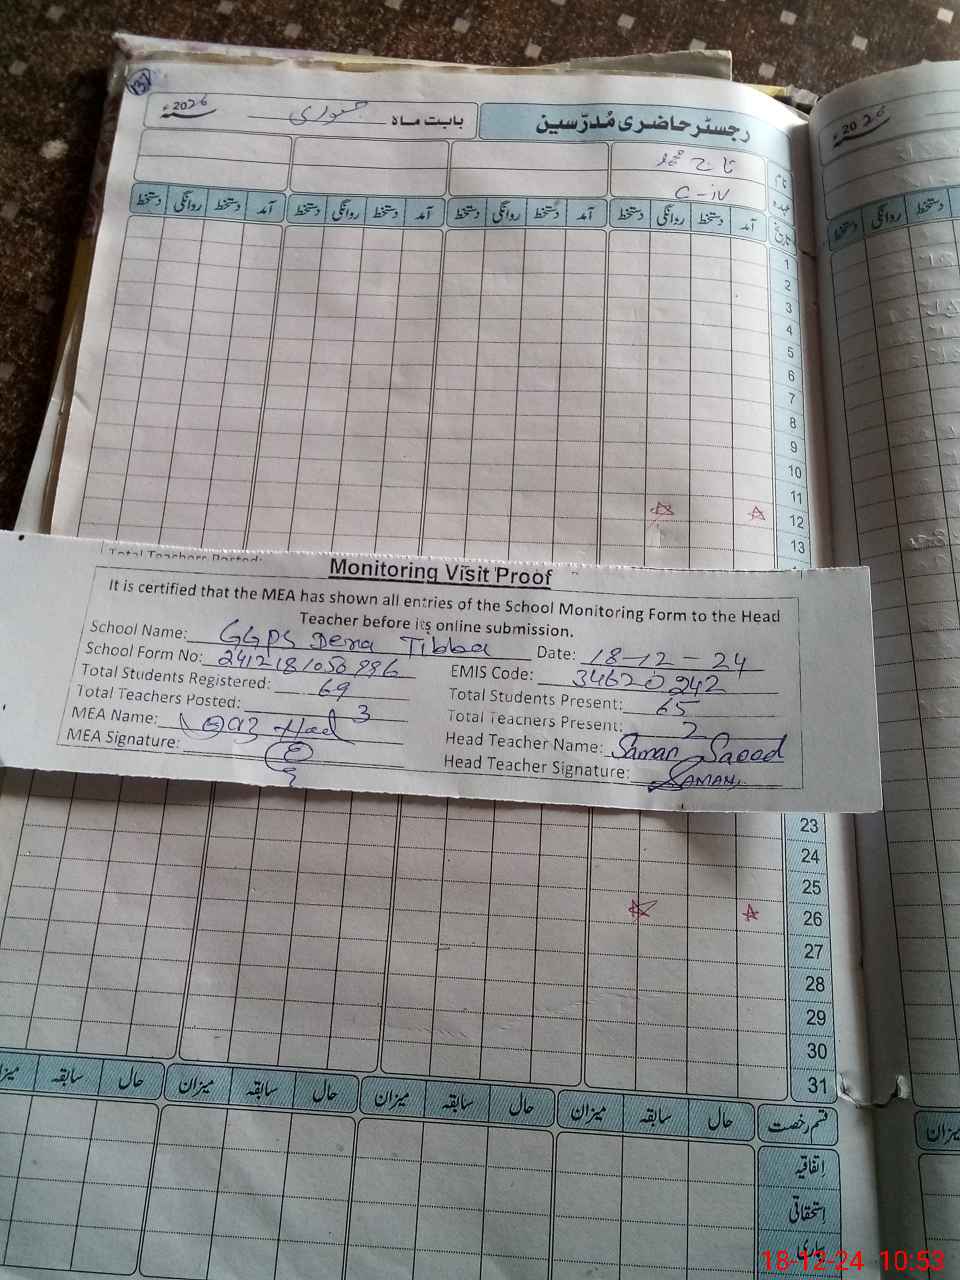 137
رجسٹر حاضری مُدرّسین
بابت ماہ جنوری سنہ 2026ء
سنہ 2026ء
نام تاج محمد
عہدہ C-iv
تاریخ آمد دستخط روانگی دستخط آمد دستخط روانگی دستخط آمد دستخط روانگی دستخط آمد دستخط روانگی دستخط
روانگی دستخط
1
2
3
4
5
6
7
8
9
10
11
12
13
Total Teachers Posted:
Monitoring Visit Proof
It is certified that the MEA has shown all entries of the School Monitoring Form to the Head
Teacher before its online submission.
School Name: GGPS Dera Tibba Date: 18-12-24
School Form No: 2412181050996 EMIS Code: 34620242
Total Students Registered: 69 Total Students Present: 65
Total Teachers Posted: 3 Total Teachers Present: 2
MEA Name: Head Teacher Name: Saman Saood
MEA Signature: Head Teacher Signature: SAMAN
23
24
25
26
27
28
29
30
31
قسم رخصت حال سابقہ میزان حال سابقہ میزان حال سابقہ میزان حال سابقہ میزان
میزان
اتفاقیہ
استحقاقی
بیماری
18-12-24 10:53